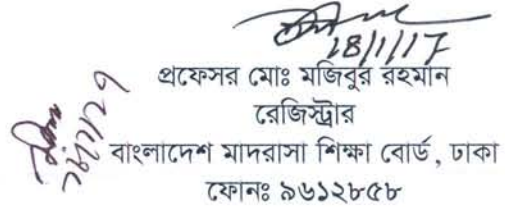 18/1/17
প্রফেসর মোঃ মজিবুর রহমান
রেজিস্ট্রার
বাংলাদেশ মাদরাসা শিক্ষা বোর্ড, ঢাকা
ফোনঃ ৯৬১২৮৫৮